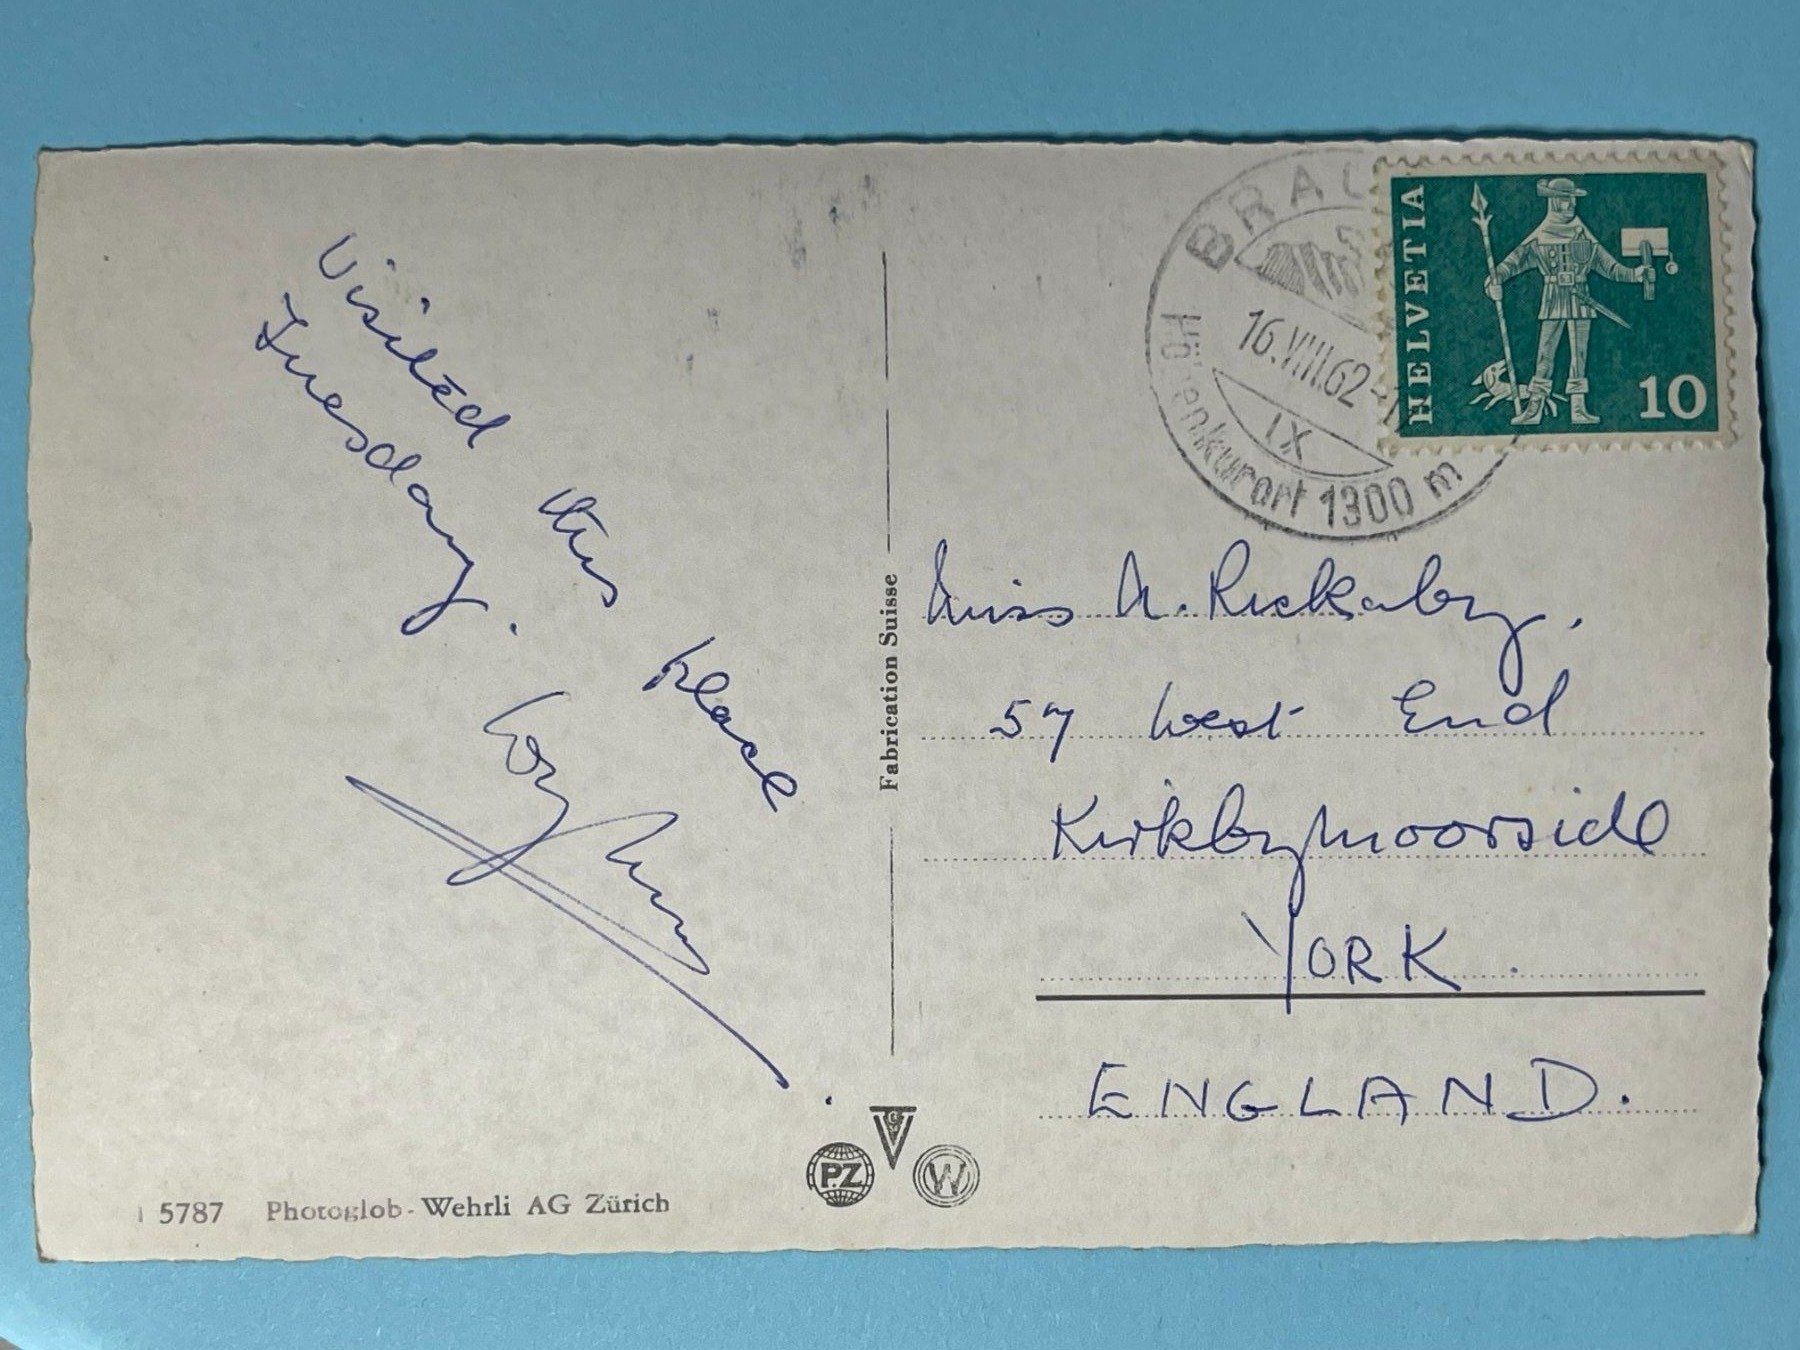 Visited this place
Tuesday.
Fabrication Suisse
BRAU
16.VIII.62-1
IX
Höhenkurort 1300 m
HELVETIA
10
Miss M. Rickaby,
57 West End
Kirkbymoorside
YORK.
ENGLAND.
P.Z
W
5787 Photoglob-Wehrli AG Zürich